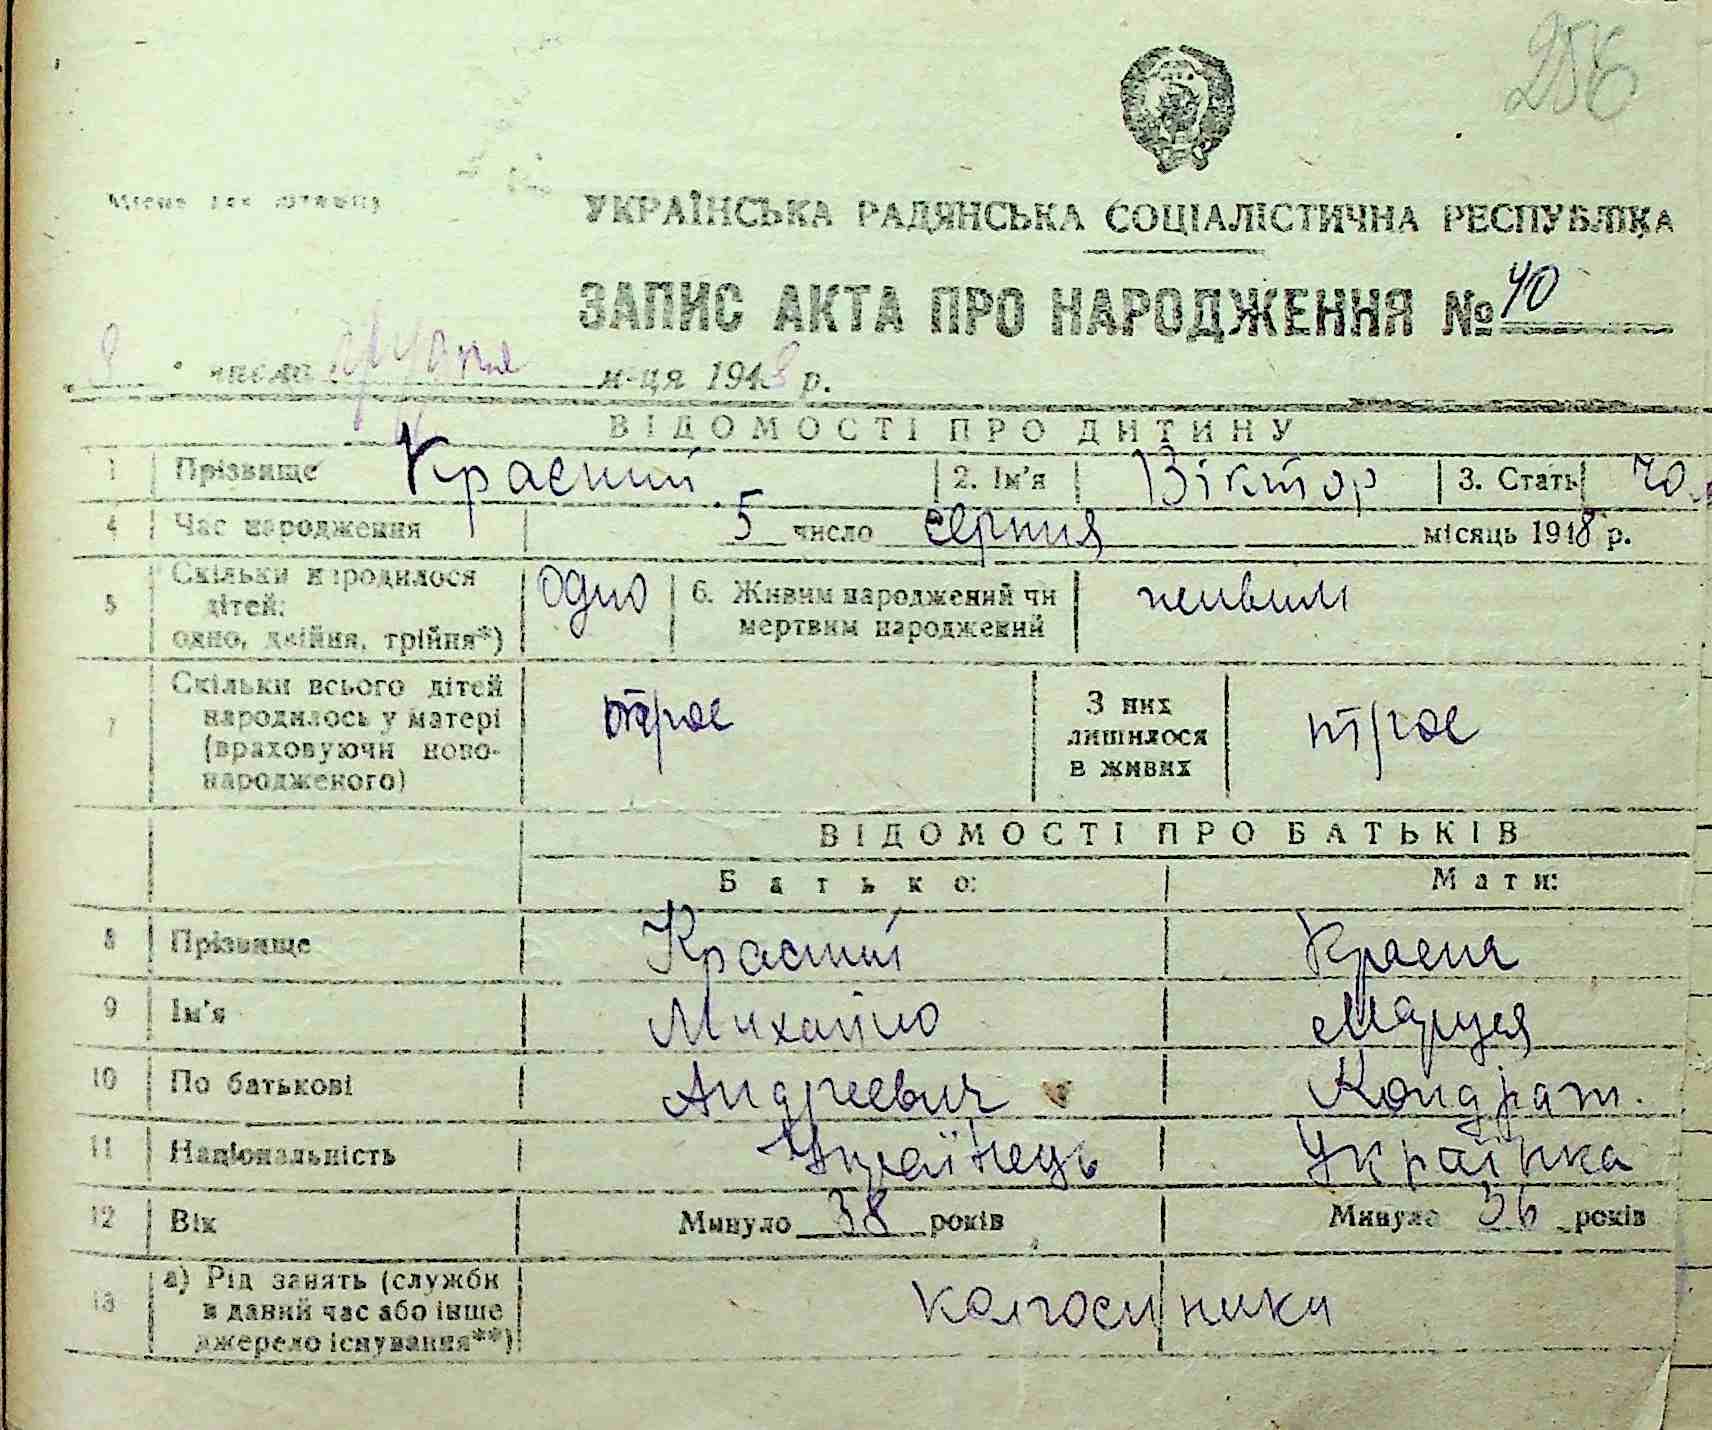 256
Місце для штампу
УКРАЇНСЬКА РАДЯНСЬКА СОЦІАЛІСТИЧНА РЕСПУБЛІКА
ЗАПИС АКТА ПРО НАРОДЖЕННЯ № 40
„8“ числа грудня м-ця 1948 р.
ВІДОМОСТІ ПРО ДИТИНУ
1 Прізвище Красний 2. Ім'я Віктор 3. Стать чо.
4 Час народження 5 число серпня місяць 1948 р.
5 Скільки народилося дітей: одно, двійня, трійня*) одно 6. Живим народжений чи мертвим народжений живим
7 Скільки всього дітей народилось у матері (враховуючи новонародженого) троє З них лишилося в живих троє
ВІДОМОСТІ ПРО БАТЬКІВ
Батько: Мати:
8 Прізвище Красний Красня
9 Ім'я Михайло Маруся
10 По батькові Андреевич Кондрат.
11 Національність Українець Українка
12 Вік Минуло 38 років Минуло 36 років
13 а) Рід занять (служби в даний час або інше джерело існування**) колгоспники